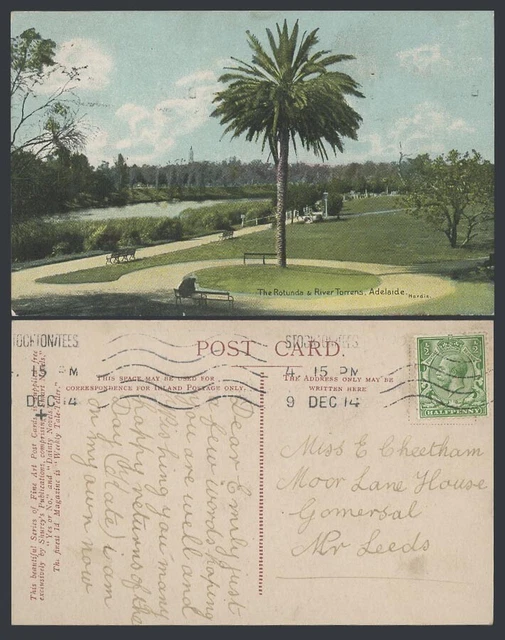 The Rotunda & River Torrens, Adelaide.
POST CARD.
THIS SPACE MAY BE USED FOR
CORRESPONDENCE FOR INLAND POSTAGE ONLY.
THE ADDRESS ONLY MAY BE
WRITTEN HERE
This beautiful Series of Fine Art Post Cards is supplied free
exclusively by Shurey's Publications, comprising "Smart Novels,"
"Yes or No," and "Dainty Novels."
The finest 1d. Magazine is "Weekly Tale-Teller."
STOCKTON/TEES
15 M
DEC 14
4. 15 PM
9 DEC 14
HALFPENNY
Dear Emily just
a few words hoping
you are well and
wishing you many
happy returns of the
Day (Late) i am
on my own now
Miss E Cheetham
Moor Lane House
Gomersal
Nr Leeds